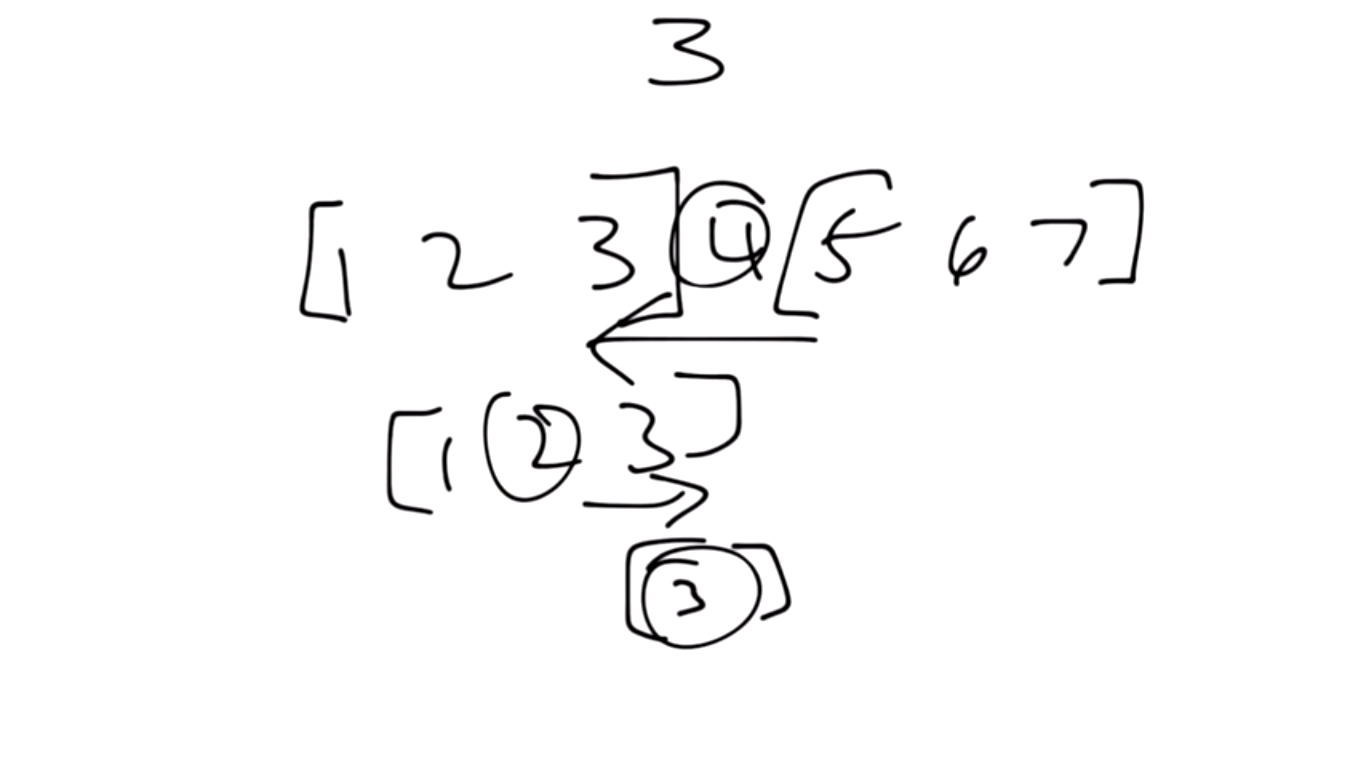 3
[1 2 3] 4 [5 6 7]
[1 2 3]
[3]